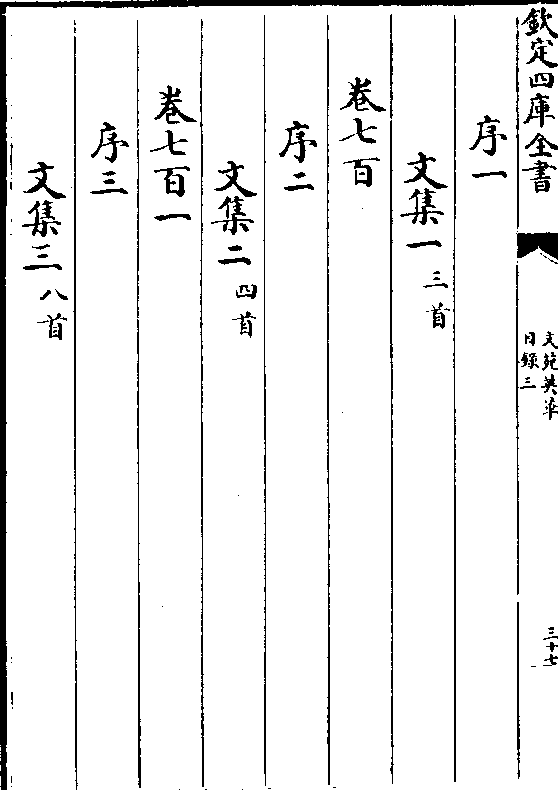 欽定四庫全書
文苑英華
目録三
三十七
序一
文集一 三首
卷七百
序二
文集二 四首
卷七百一
序三
文集三 八首